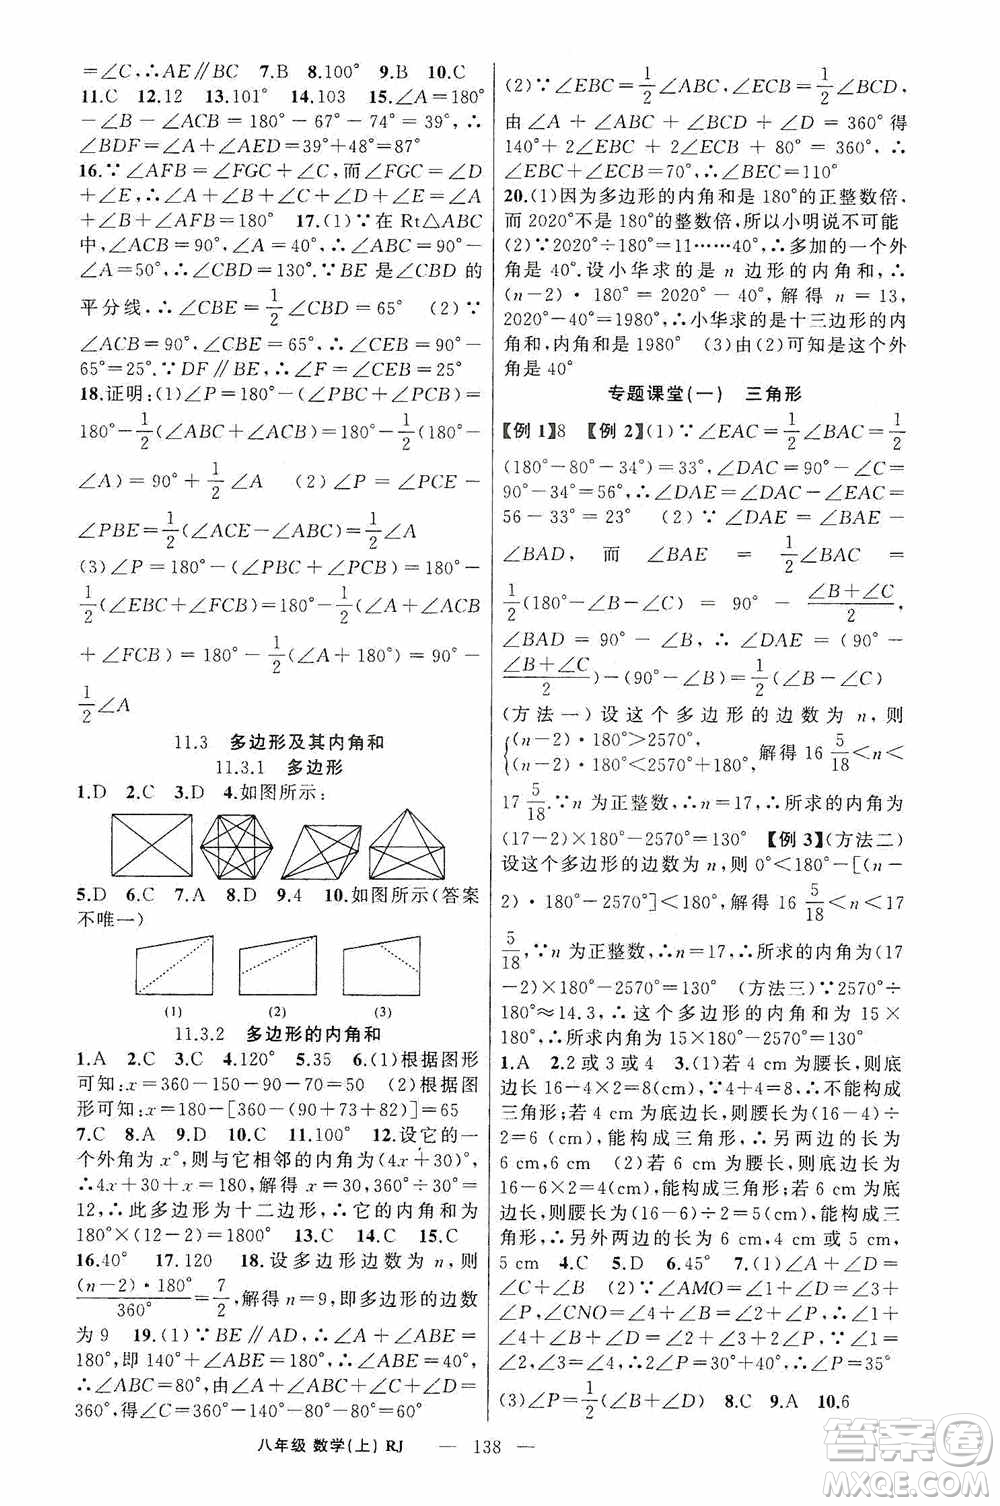 =∠C,∴AE∥BC 7.B 8.100° 9.B 10.C
11.C 12.12 13.101° 14.103 15.∠A=180°
-∠B-∠ACB=180°-67°-74°=39°,∴
∠BDF=∠A+∠AED=39°+48°=87°
16.∵∠AFB=∠FGC+∠C,而∠FGC=∠D
+∠E,∴∠A+∠B+∠C+∠D+∠E=∠A
+∠B+∠AFB=180° 17.(1)∵在Rt△ABC
中,∠ACB=90°,∠A=40°,∴∠ABC=90°-
∠A=50°,∴∠CBD=130°.∵BE是∠CBD的
平分线,∴∠CBE=1/2∠CBD=65° (2)∵
∠ACB=90°,∠CBE=65°,∴∠CEB=90°-
65°=25°.∵DF∥BE,∴∠F=∠CEB=25°
18.证明:(1)∠P=180°-(∠PBC+∠PCB)=
180°-1/2(∠ABC+∠ACB)=180°-1/2(180°-
∠A)=90°+1/2∠A (2)∠P=∠PCE-
∠PBE=1/2(∠ACE-∠ABC)=1/2∠A
(3)∠P=180°-(∠PBC+∠PCB)=180°-
1/2(∠EBC+∠FCB)=180°-1/2(∠A+∠ACB
+∠FCB)=180°-1/2(∠A+180°)=90°-
1/2∠A
11.3 多边形及其内角和
11.3.1 多边形
1.D 2.C 3.D 4.如图所示:
5.D 6.C 7.A 8.D 9.4 10.如图所示(答案
不唯一)
(1) (2) (3)
11.3.2 多边形的内角和
1.A 2.C 3.C 4.120° 5.35 6.(1)根据图形
可知:x=360-150-90-70=50 (2)根据图
形可知:x=180-[360-(90+73+82)]=65
7.C 8.A 9.D 10.C 11.100° 12.设它的一
个外角为x°,则与它相邻的内角为(4x+30)°,
∴4x+30+x=180,解得x=30,360°÷30°=
12,∴此多边形为十二边形,∴它的内角和为180°
×(12-2)=1800° 13.C 14.C 15.C
16.40° 17.120 18.设多边形边数为n,则
(n-2)·180°/360°=7/2,解得n=9,即多边形的边数
为9 19.(1)∵BE∥AD,∴∠A+∠ABE=
180°,即140°+∠ABE=180°,∴∠ABE=40°,
∴∠ABC=80°,由∠A+∠ABC+∠C+∠D=
360°,得∠C=360°-140°-80°-80°=60°
(2)∵∠EBC=1/2∠ABC,∠ECB=1/2∠BCD,
由∠A+∠ABC+∠BCD+∠D=360°得
140°+2∠EBC+2∠ECB+80°=360°,∴
∠EBC+∠ECB=70°,∴∠BEC=110°
20.(1)因为多边形的内角和是180°的正整数倍,
而2020°不是180°的整数倍,所以小明说不可能
(2)∵2020°÷180°=11……40°,∴多加的一个外
角是40°.设小华求的是n边形的内角和,∴
(n-2)·180°=2020°-40°,解得n=13,
2020°-40°=1980°,∴小华求的是十三边形的内
角和,内角和是1980° (3)由(2)可知是这个外
角是40°
专题课堂(一) 三角形
【例1】8 【例2】(1)∵∠EAC=1/2∠BAC=1/2
(180°-80°-34°)=33°,∠DAC=90°-∠C=
90°-34°=56°,∴∠DAE=∠DAC-∠EAC=
56-33°=23° (2)∵∠DAE=∠BAE-
∠BAD,而∠BAE=1/2∠BAC=
1/2(180°-∠B-∠C)=90°-(∠B+∠C)/2,
∠BAD=90°-∠B,∴∠DAE=(90°-
(∠B+∠C)/2)-(90°-∠B)=1/2(∠B-∠C)
(方法一)设这个多边形的边数为n,则
{(n-2)·180°>2570°,(n-2)·180°-180°<2570°,解得16 5/18<n<
17 5/18.∵n为正整数,∴n=17,∴所求的内角为
(17-2)×180°-2570°=130° 【例3】(方法二)
设这个多边形的边数为n,则0°<180°-[(n-
2)·180°-2570°]<180°,解得16 5/18<n<17
5/18,∵n为正整数,∴n=17,∴所求的内角为(17
-2)×180°-2570°=130° (方法三)∵2570°÷
180°≈14.3,∴这个多边形的内角和为15×
180°,∴所求内角为15×180°-2570°=130°
1.A 2.2或3或4 3.(1)若4 cm为腰长,则底
边长为16-4×2=8(cm),∵4+4=8,∴不能构成
三角形;若4 cm为底边长,则腰长为(16-4)÷
2=6(cm),能构成三角形,∴另两边的长为
6 cm,6 cm (2)若6 cm为腰长,则底边长为
16-6×2=4(cm),能构成三角形;若6 cm为底
边长,则腰长为(16-6)÷2=5(cm),能构成三角
形,∴另外两边的长为6 cm,4 cm或5 cm,
5 cm 4.C 5.D 6.45° 7.(1)∠A+∠D=
∠C+∠B (2)∵∠AMO=∠1+∠D=∠3+
∠P,∠CNO=∠4+∠B=∠2+∠P,∴∠1
+∠D+∠4+∠B=∠3+∠P+∠2+∠P,∵∠1
=∠2,∠3=∠4,∴2∠P=∠D+∠B,∴∠P=35°
(3)∠P=1/2(∠B+∠D) 8.C 9.A 10.6
八年级 数学(上) RJ — 138 —
答案圈
MXQE.COM